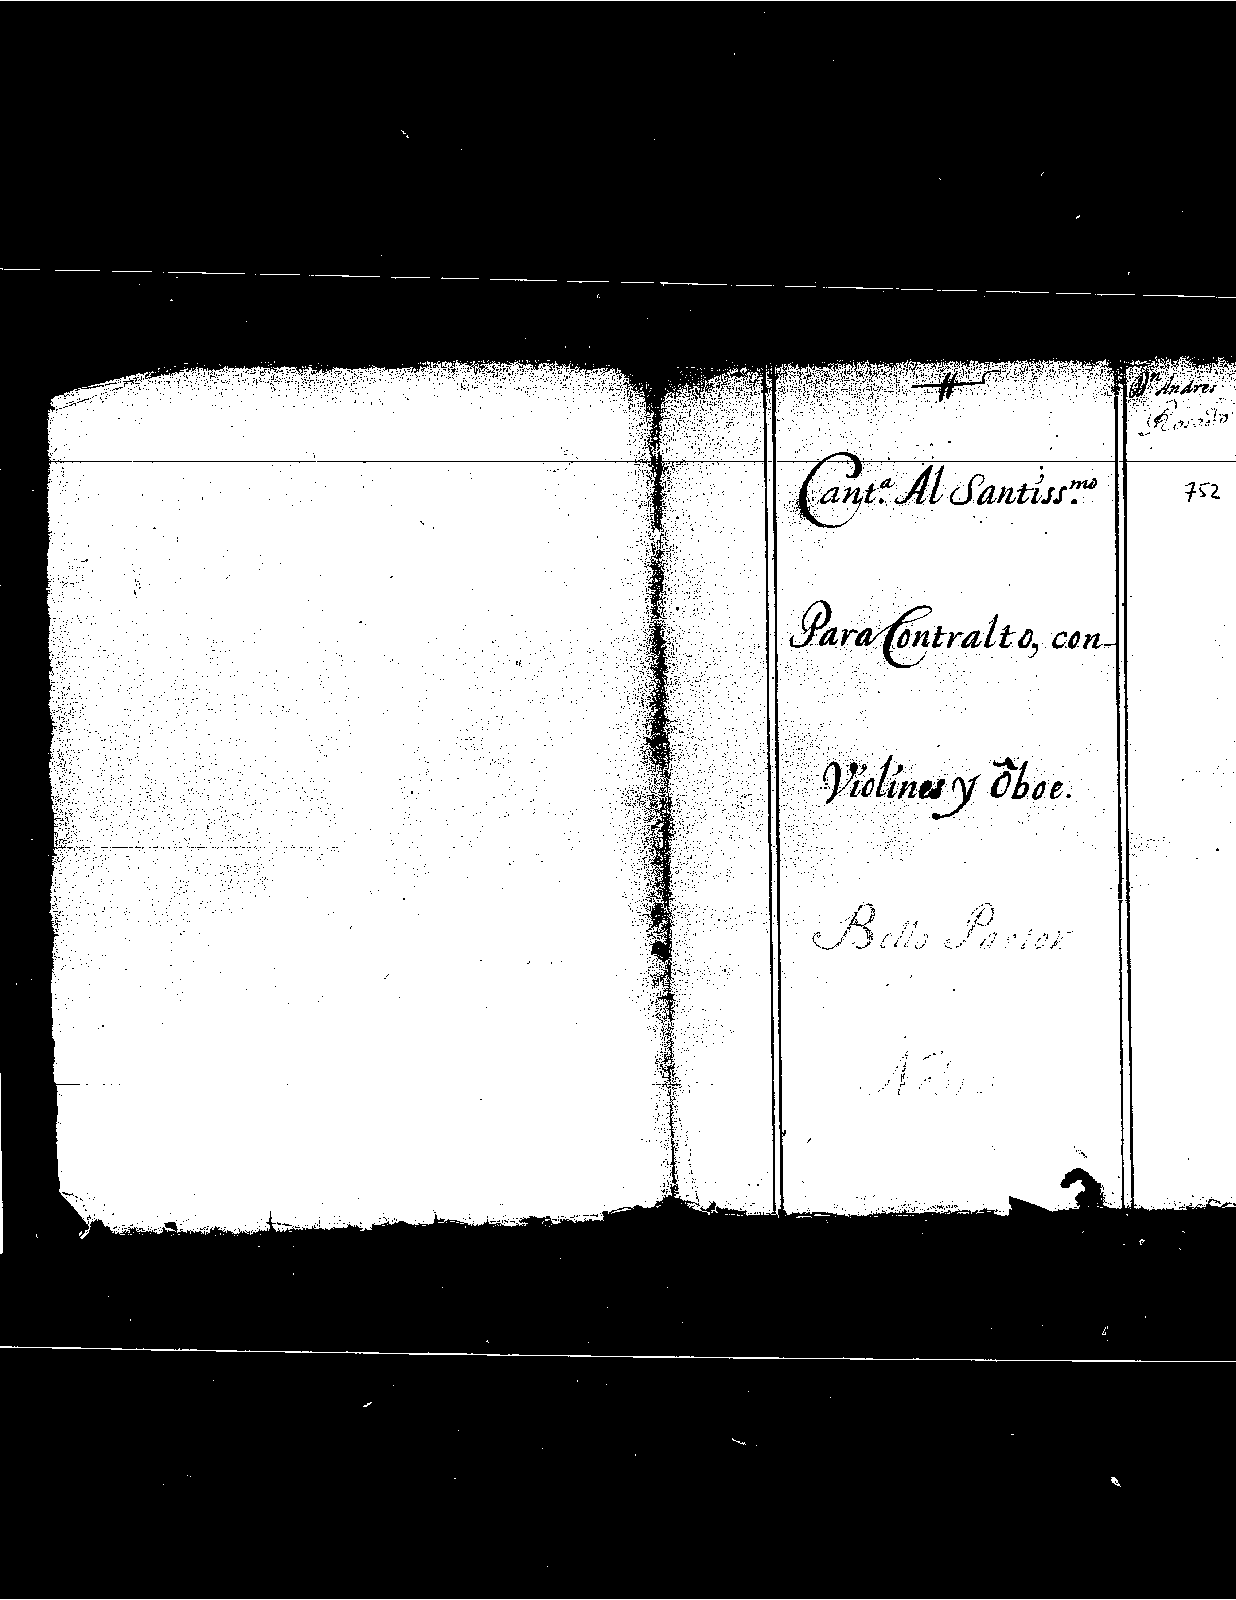 Dn. Andres
Rosado
Cant.a Al Santiss.mo
752
Para Contralto, con
Violines y Oboe.
Bello Pastor